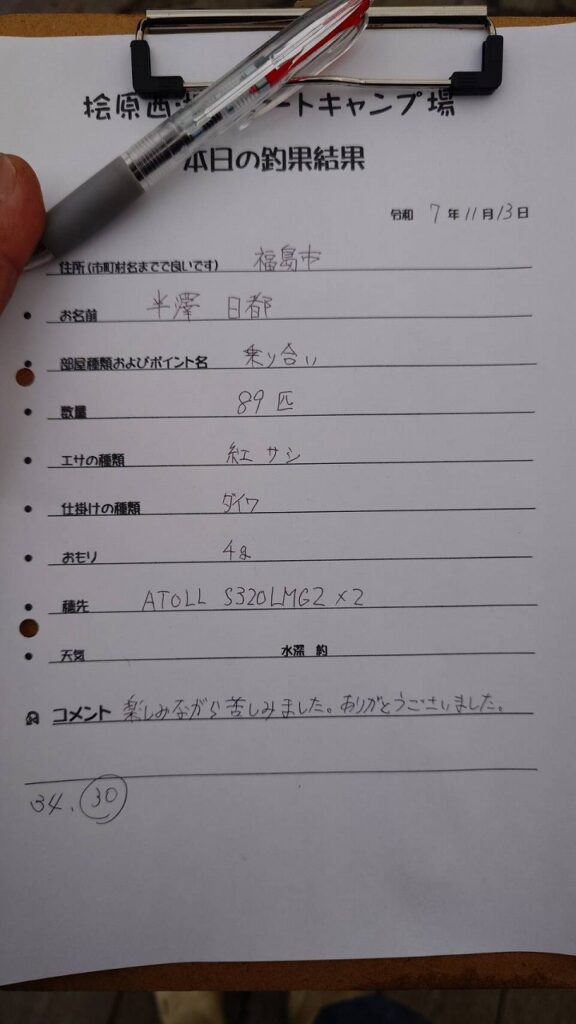 桧原西 ートキャンプ場
本日の釣果結果
令和 7年11月13日
住所(市町村名までで良いです) 福島市
お名前 半澤 日都
部屋種類およびポイント名 乗り合い
数量 89匹
エサの種類 紅サシ
仕掛けの種類 ダイワ
おもり 4g
穂先 ATOLL S320LMG2×2
天気 水深 約
コメント 楽しみながら苦しみました。ありがとうございました。
34. 30